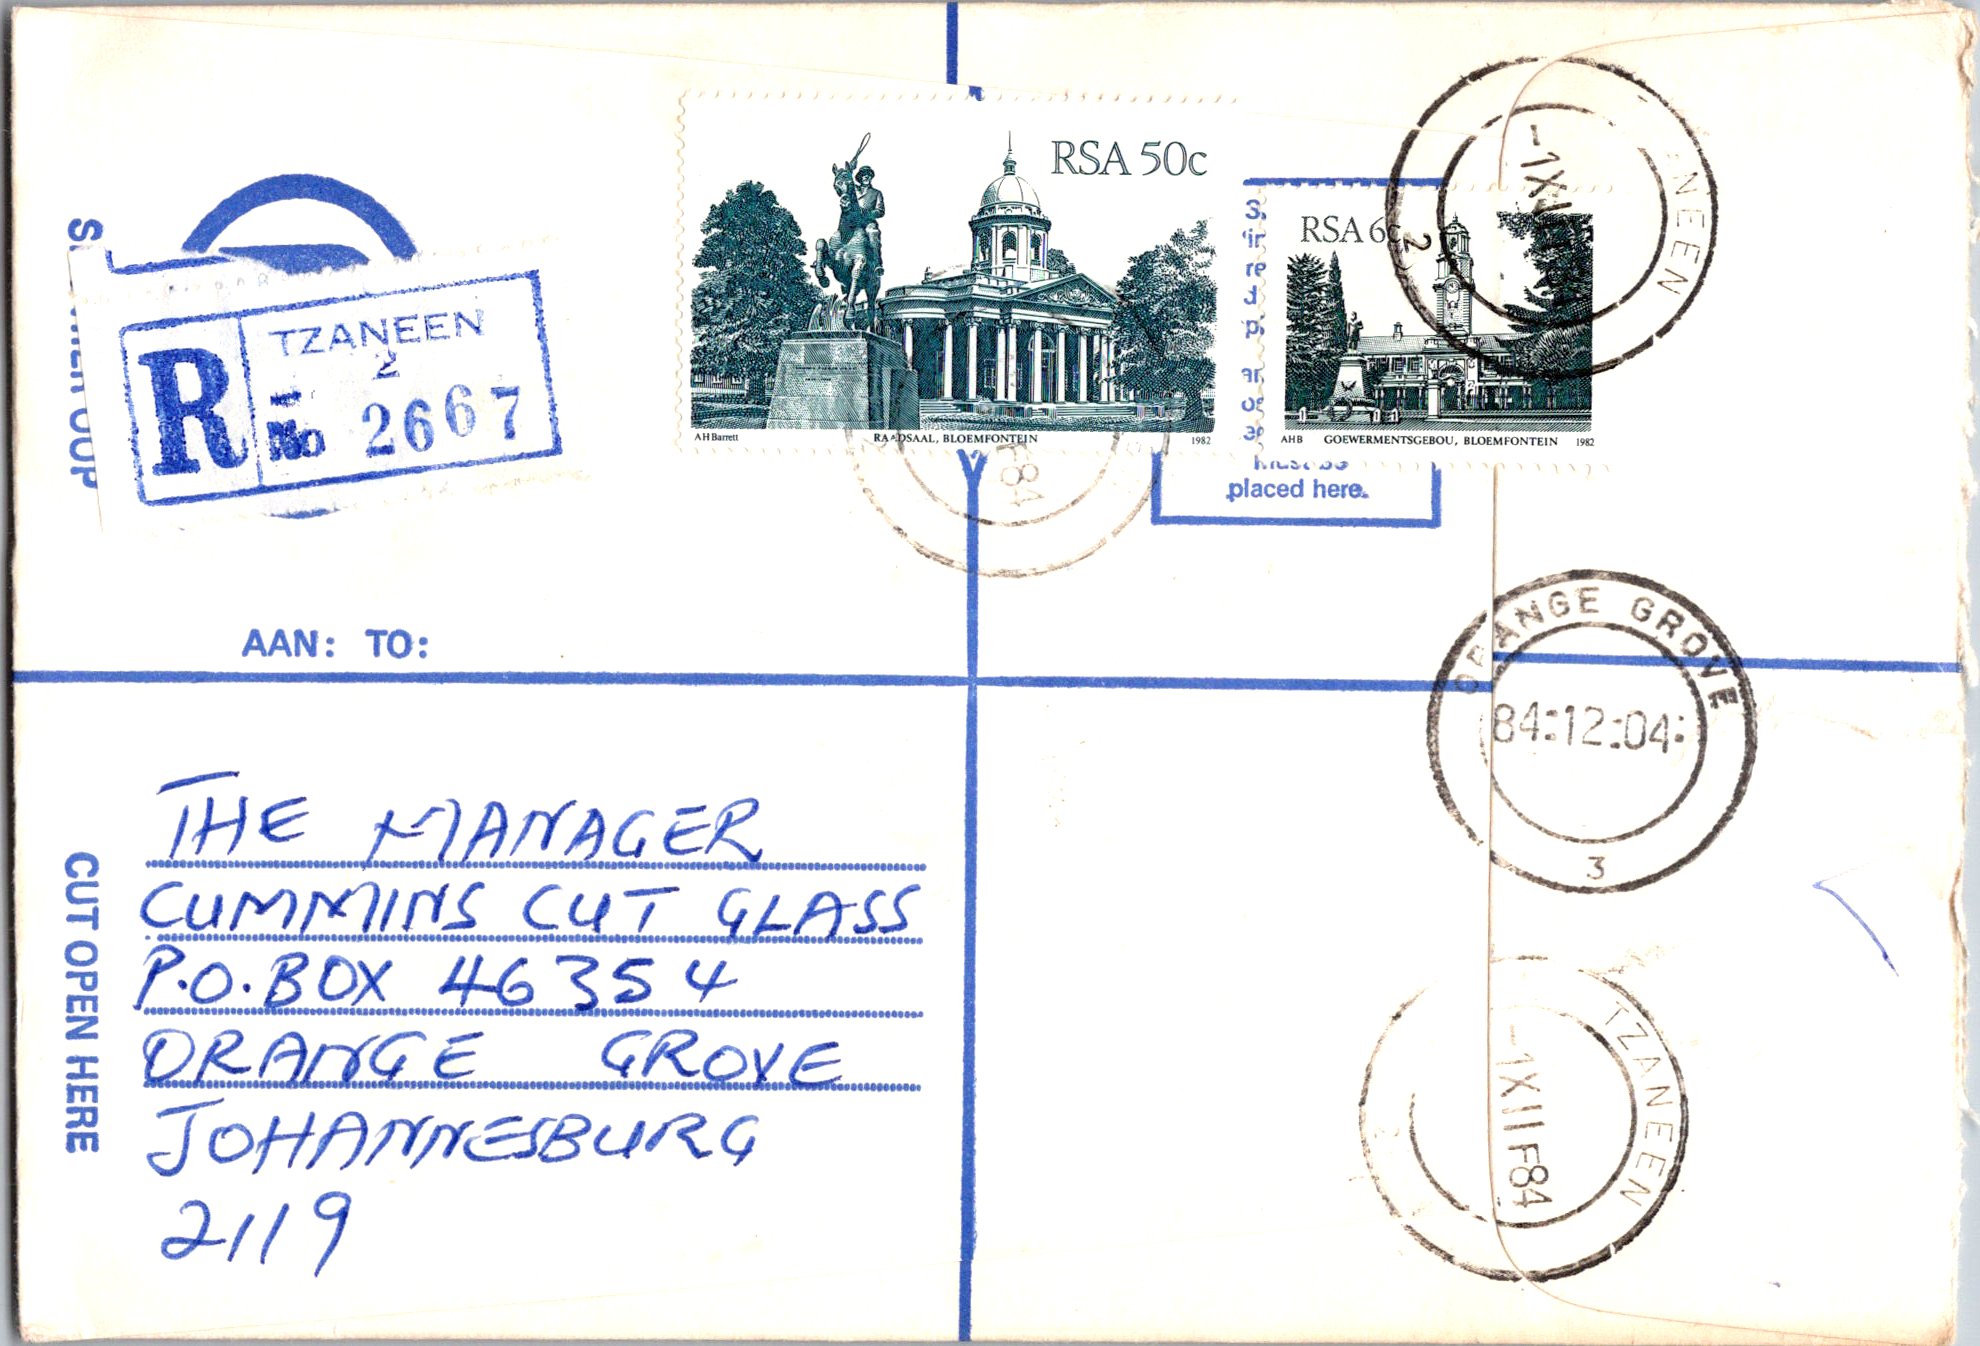 RSA 50c
AH Barrett RAADSAAL, BLOEMFONTEIN 1982
RSA 6c
AHB GOEWERMENTSGEBOU, BLOEMFONTEIN 1982
placed here.
R
TZANEEN
2
No 2667
NEEN
2
F84
AAN: TO:
ORANGE GROVE
84:12:04:
3
THE MANAGER
CUMMINS CUT GLASS
P.O. BOX 46354
ORANGE GROVE
JOHANNESBURG
2119
CUT OPEN HERE
TZANEEN
-1XII F84